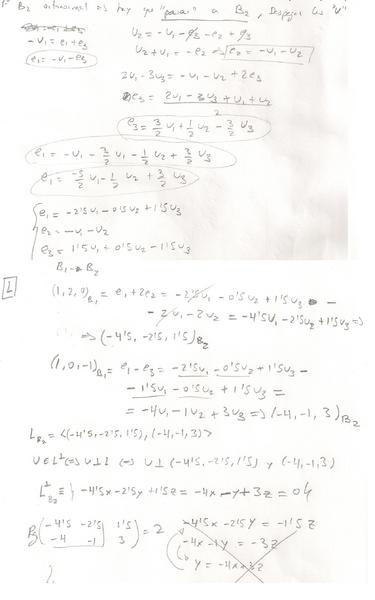 B₂ ortonormal => hay que "pasar" a B₂, Despejar los "v"
-v₁ = e₁ + e₃
e₁ = -v₁ - e₃
v₂ = -v₁ - e₃ - e₂ + e₃
v₂ + v₁ = -e₂ => e₂ = -v₁ - v₂
2v₁ - 3v₃ = -v₁ - v₂ + 2e₃
e₃ = (2v₁ - 3v₃ + v₁ + v₂)/2
e₃ = 3/2 v₁ + 1/2 v₂ - 3/2 v₃
e₁ = -v₁ - 3/2 v₁ - 1/2 v₂ + 3/2 v₃
e₁ = -5/2 v₁ - 1/2 v₂ + 3/2 v₃
e₁ = -2'5v₁ - 0'5v₂ + 1'5v₃
e₂ = -v₁ - v₂
e₃ = 1'5v₁ + 0'5v₂ - 1'5v₃
B₁ → B₂
L
(1,2,0)B₁ = e₁ + 2e₂ = -2'5v₁ - 0'5v₂ + 1'5v₃ -
- 2v₁ - 2v₂ = -4'5v₁ - 2'5v₂ + 1'5v₃ =>
=> (-4'5, -2'5, 1'5)B₂
(1,0,-1)B₁ = e₁ - e₃ = -2'5v₁ - 0'5v₂ + 1'5v₃ -
- 1'5v₁ - 0'5v₂ + 1'5v₃ =
= -4v₁ - 1v₂ + 3v₃ => (-4,-1,3)B₂
L B₂ = <(-4'5, -2'5, 1'5), (-4,-1,3)>
v ∈ L⊥ <=> v ⊥ L <=> v ⊥ (-4'5, -2'5, 1'5) y (-4,-1,3)
L⊥B₂ ≡ } -4'5x - 2'5y + 1'5z = -4x - y + 3z = 0
(-4'5 -2'5 1'5
-4 -1 3) = 2
-4'5x - 2'5y = -1'5z
-4x - 1y = -3z
y = -4x + 3z